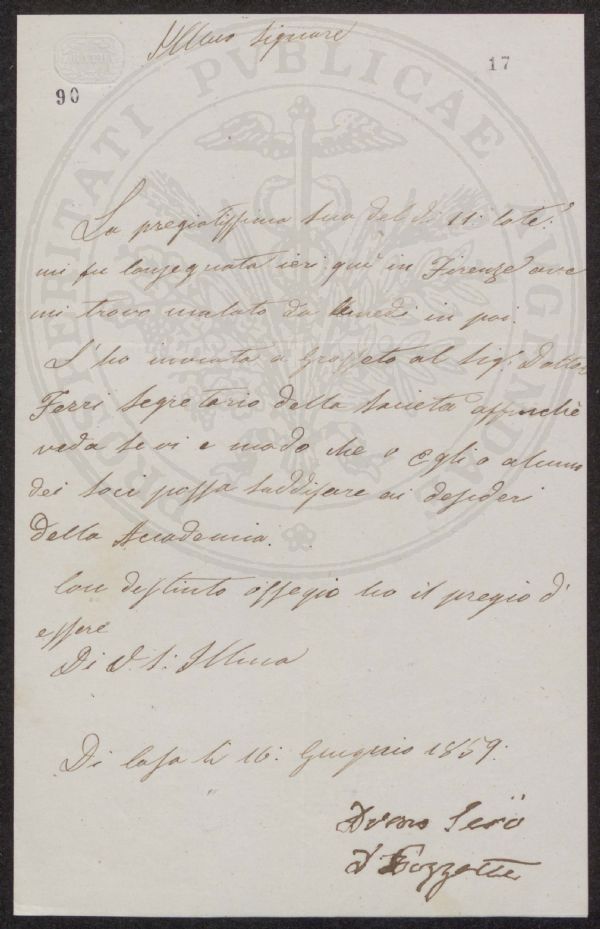 Illmo Signore
17
90
PROSPERITATI PVBLICAE AVGENDAE
La pregiatissima sua del dì 11: Cote:
mi fu consegnata ieri quì in Firenze ove
mi trovo malato da Lunedi in poi.
L'ho inviata a Grosseto al Sig: Dottor
Ferri Segretario della Società affinchè
veda se vi è modo che o Egli o alcuno
dei Soci possa soddisfare ai desideri
della Accademia.
Con distinto ossequio ho il pregio d'
essere
Di V. S: Illma
Di Casa lì 16: Giugno 1859.
Devmo Serv